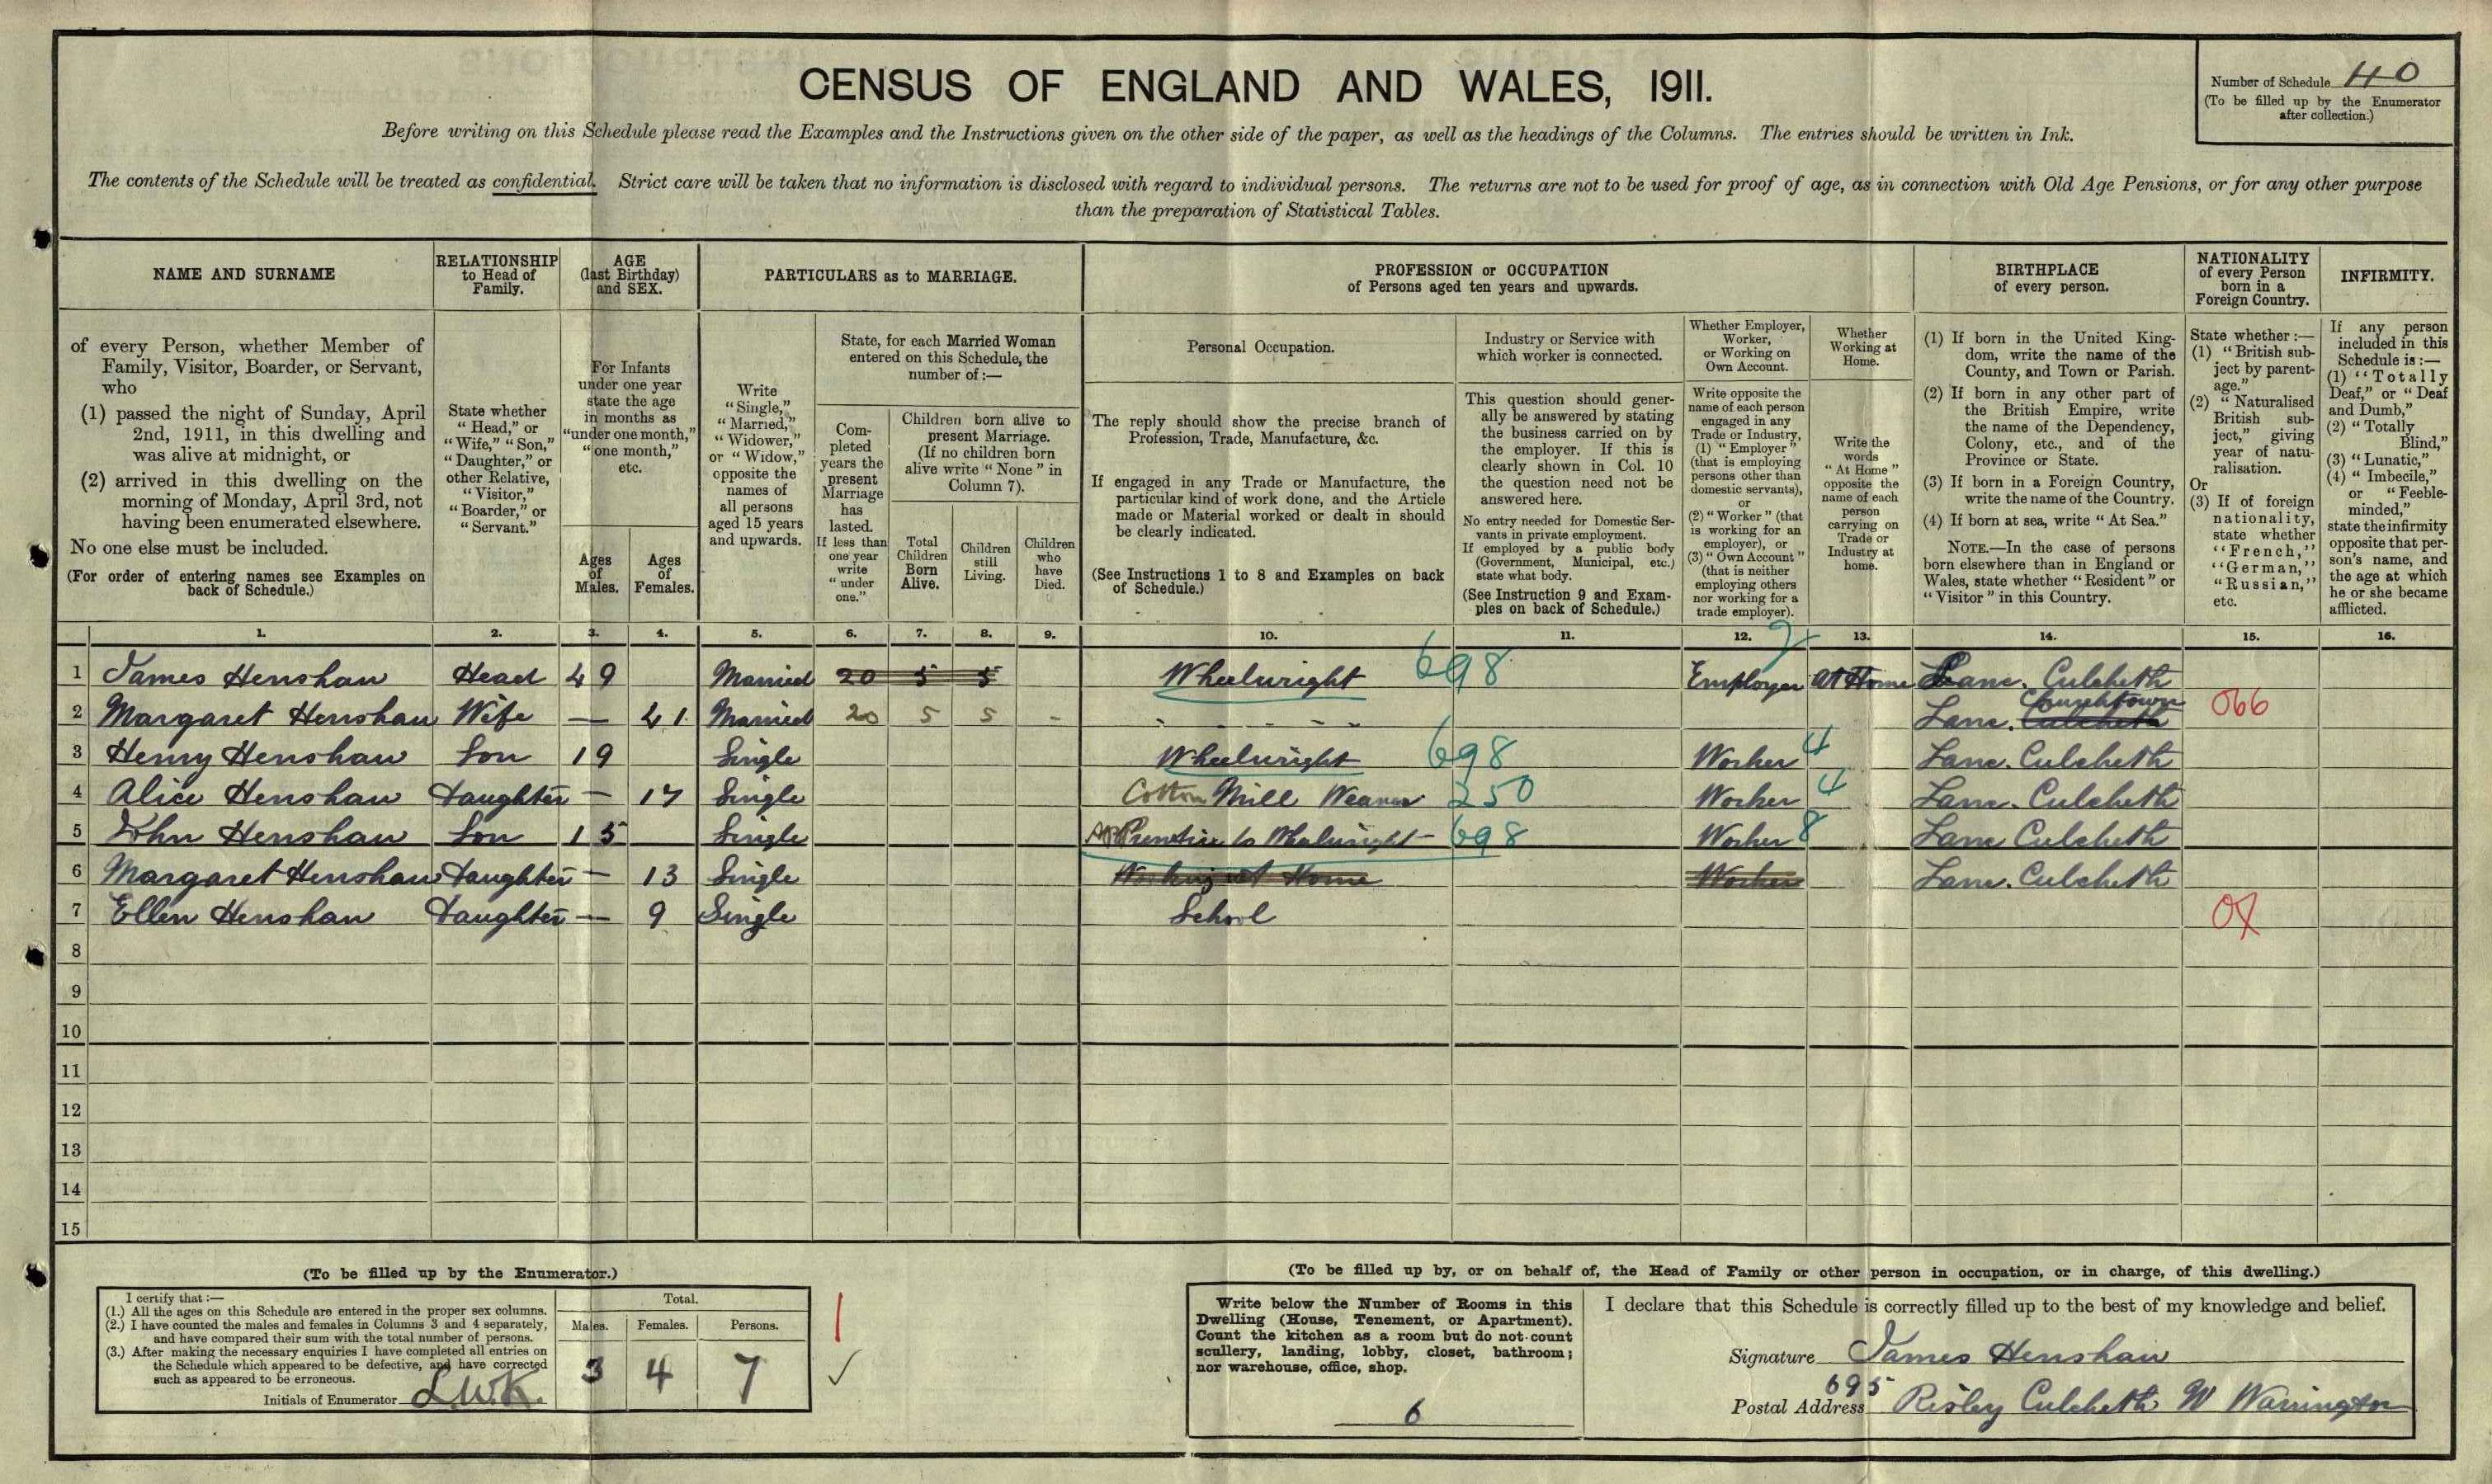 CENSUS OF ENGLAND AND WALES, 1911.
Number of Schedule 40
(To be filled up by the Enumerator
after collection.)
Before writing on this Schedule please read the Examples and the Instructions given on the other side of the paper, as well as the headings of the Columns. The entries should be written in Ink.
The contents of the Schedule will be treated as confidential. Strict care will be taken that no information is disclosed with regard to individual persons. The returns are not to be used for proof of age, as in connection with Old Age Pensions, or for any other purpose
than the preparation of Statistical Tables.
NAME AND SURNAME
of every Person, whether Member of
Family, Visitor, Boarder, or Servant,
who
(1) passed the night of Sunday, April
2nd, 1911, in this dwelling and
was alive at midnight, or
(2) arrived in this dwelling on the
morning of Monday, April 3rd, not
having been enumerated elsewhere.
No one else must be included.
(For order of entering names see Examples on
back of Schedule.)
RELATIONSHIP
to Head of
Family.
State whether
"Head," or
"Wife," "Son,"
"Daughter," or
other Relative,
"Visitor,"
"Boarder," or
"Servant."
AGE
(last Birthday)
and SEX.
For Infants
under one year
state the age
in months as
"under one month,"
"one month,"
etc.
Ages
of
Males.
Ages
of
Females.
PARTICULARS as to MARRIAGE.
Write
"Single,"
"Married,"
"Widower,"
or "Widow,"
opposite the
names of
all persons
aged 15 years
and upwards.
State, for each Married Woman
entered on this Schedule, the
number of:—
Com-
pleted
years the
present
Marriage
has
lasted.
If less than
one year
write
"under
one."
Children born alive to
present Marriage.
(If no children born
alive write "None" in
Column 7).
Total
Children
Born
Alive.
Children
still
Living.
Children
who
have
Died.
PROFESSION or OCCUPATION
of Persons aged ten years and upwards.
Personal Occupation.
The reply should show the precise branch of
Profession, Trade, Manufacture, &c.
If engaged in any Trade or Manufacture, the
particular kind of work done, and the Article
made or Material worked or dealt in should
be clearly indicated.
(See Instructions 1 to 8 and Examples on back
of Schedule.)
Industry or Service with
which worker is connected.
This question should gener-
ally be answered by stating
the business carried on by
the employer. If this is
clearly shown in Col. 10
the question need not be
answered here.
No entry needed for Domestic Ser-
vants in private employment.
If employed by a public body
(Government, Municipal, etc.)
state what body.
(See Instruction 9 and Exam-
ples on back of Schedule.)
Whether Employer,
Worker,
or Working on
Own Account.
Write opposite the
name of each person
engaged in any
Trade or Industry,
(1) "Employer"
(that is employing
persons other than
domestic servants),
or
(2) "Worker" (that
is working for an
employer), or
(3) "Own Account"
(that is neither
employing others
nor working for a
trade employer).
Whether
Working at
Home.
Write the
words
"At Home"
opposite the
name of each
person
carrying on
Trade or
Industry at
home.
BIRTHPLACE
of every person.
(1) If born in the United King-
dom, write the name of the
County, and Town or Parish.
(2) If born in any other part of
the British Empire, write
the name of the Dependency,
Colony, etc., and of the
Province or State.
(3) If born in a Foreign Country,
write the name of the Country.
(4) If born at sea, write "At Sea."
NOTE.—In the case of persons
born elsewhere than in England or
Wales, state whether "Resident" or
"Visitor" in this Country.
NATIONALITY
of every Person
born in a
Foreign Country.
State whether:—
(1) "British sub-
ject by parent-
age."
(2) "Naturalised
British sub-
ject," giving
year of natu-
ralisation.
Or
(3) If of foreign
nationality,
state whether
"French,"
"German,"
"Russian,"
etc.
INFIRMITY.
If any person
included in this
Schedule is:—
(1) "Totally
Deaf," or "Deaf
and Dumb,"
(2) "Totally
Blind,"
(3) "Lunatic,"
(4) "Imbecile,"
or "Feeble-
minded,"
state the infirmity
opposite that per-
son's name, and
the age at which
he or she became
afflicted.
1. 2. 3. 4. 5. 6. 7. 8. 9. 10. 11. 12. 13. 14. 15. 16.
1 James Henshaw Head 49 Married 20 5 5 Wheelwright 698 Employer 2 At Home Lanc. Culcheth
2 Margaret Henshaw Wife — 41 Married 20 5 5 - Lanc. Culcheth 066
3 Henry Henshaw Son 19 Single Wheelwright 698 Worker 4 Lanc. Culcheth
4 Alice Henshaw Daughter — 17 Single Cotton Mill Weaver 250 Worker 4 Lanc. Culcheth
5 John Henshaw Son 15 Single Apprentice to Wheelwright 698 Worker 8 Lanc Culcheth
6 Margaret Henshaw Daughter — 13 Single Working at Home Worker Lanc. Culcheth
7 Ellen Henshaw Daughter — 9 Single School
8
9
10
11
12
13
14
15
(To be filled up by the Enumerator.)
I certify that:—
(1.) All the ages on this Schedule are entered in the proper sex columns.
(2.) I have counted the males and females in Columns 3 and 4 separately,
and have compared their sum with the total number of persons.
(3.) After making the necessary enquiries I have completed all entries on
the Schedule which appeared to be defective, and have corrected
such as appeared to be erroneous.
Initials of Enumerator L.W.K.
Total.
Males. Females. Persons.
3 4 7
(To be filled up by, or on behalf of, the Head of Family or other person in occupation, or in charge, of this dwelling.)
Write below the Number of Rooms in this
Dwelling (House, Tenement, or Apartment).
Count the kitchen as a room but do not count
scullery, landing, lobby, closet, bathroom;
nor warehouse, office, shop.
6
I declare that this Schedule is correctly filled up to the best of my knowledge and belief.
Signature James Henshaw
695
Postal Address Risley Culcheth W Warrington